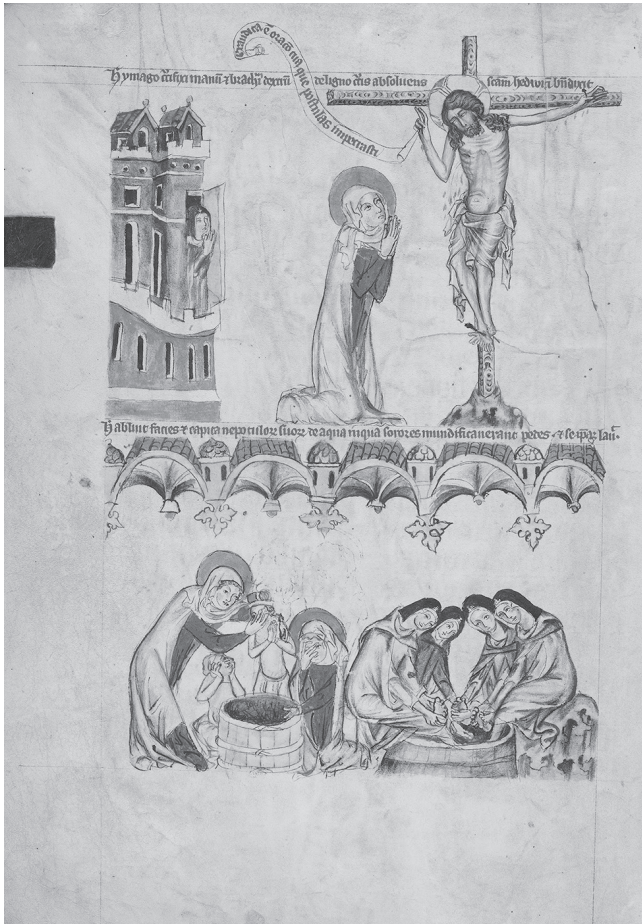 Exaudita e oracio tua que postulas impetrasti
Hymago crucifixi manum & brachium dextrum de ligno crucis absoluens sctam hedwigim benedixit
Habluit facies & capita nepotulorum suorum de aqua in qua sorores mundificauerant pedes & se